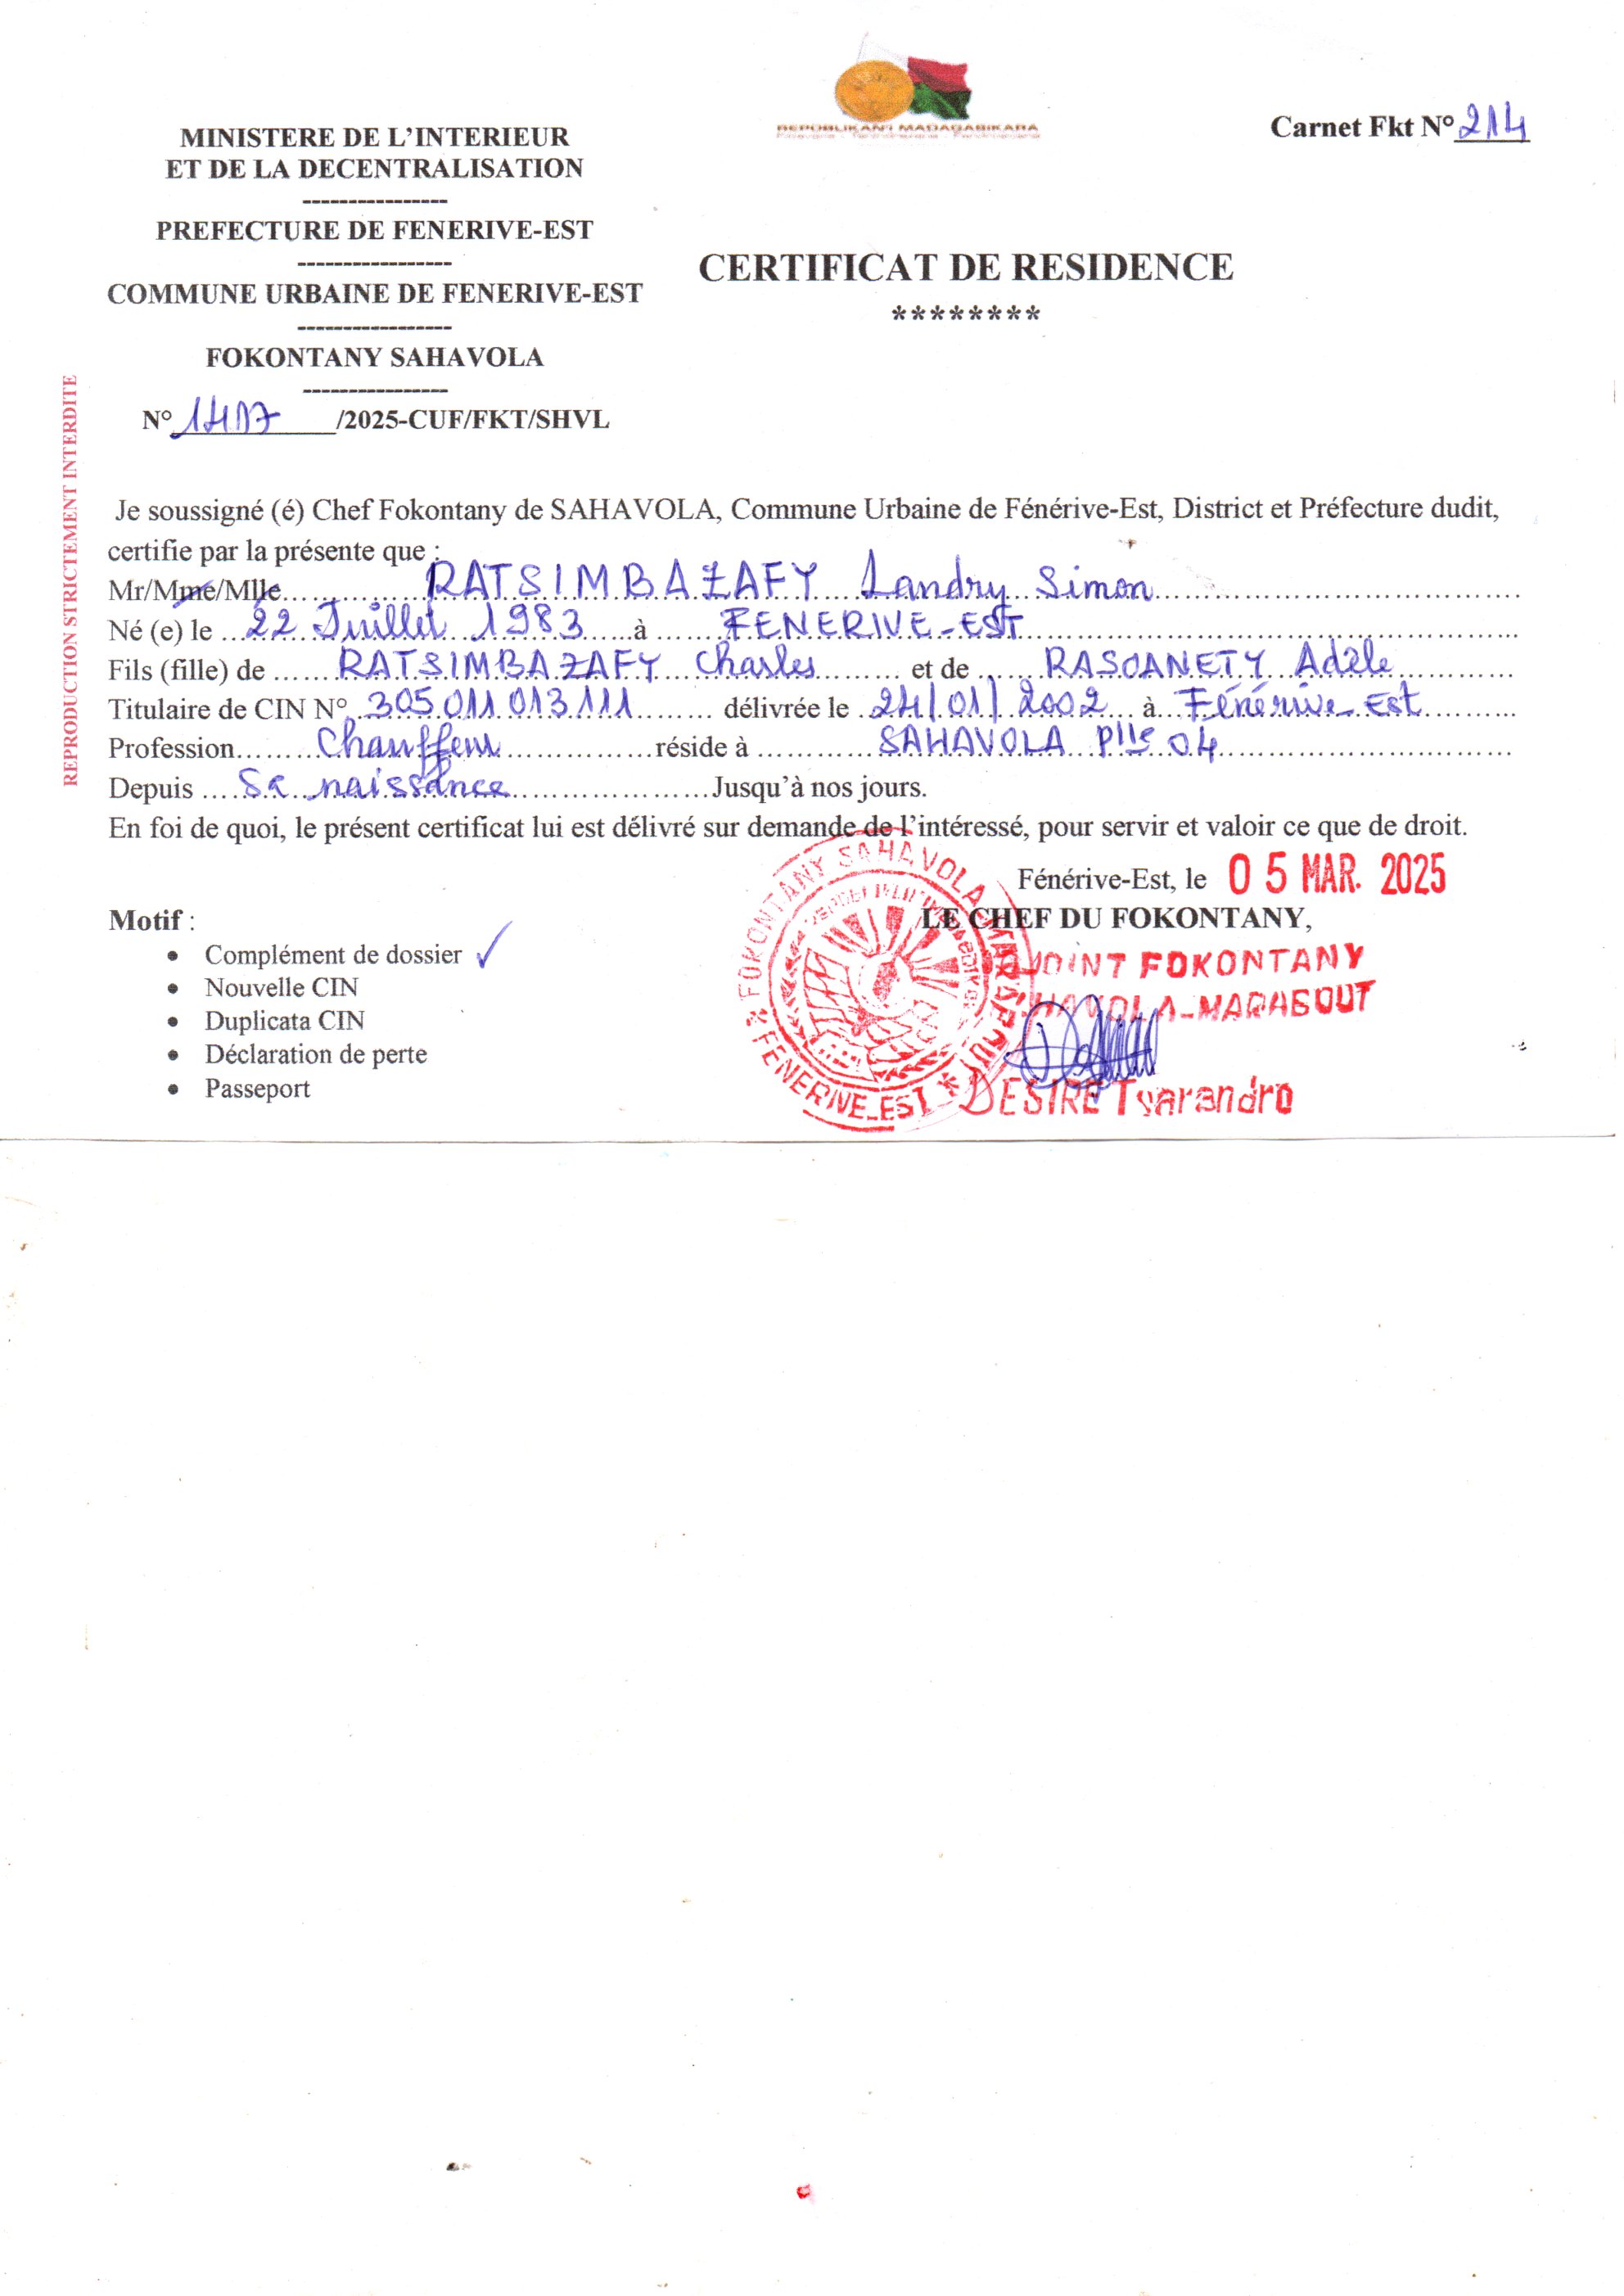 REPOBLIKAN'I MADAGASIKARA
Carnet Fkt N° 214
MINISTERE DE L'INTERIEUR
ET DE LA DECENTRALISATION
----------------
PREFECTURE DE FENERIVE-EST
-----------------
COMMUNE URBAINE DE FENERIVE-EST
-----------------
FOKONTANY SAHAVOLA
----------------
N° /2025-CUF/FKT/SHVL
CERTIFICAT DE RESIDENCE
********
REPRODUCTION STRICTEMENT INTERDITE
Je soussigné (é) Chef Fokontany de SAHAVOLA, Commune Urbaine de Fénérive-Est, District et Préfecture dudit,
certifie par la présente que :
Mr/Mme/Mlle RATSIMBAZAFY Landry Simon
Né (e) le 22 Juillet 1983 à FENERIVE-EST
Fils (fille) de RATSIMBAZAFY Charles et de RASOANETY Adèle
Titulaire de CIN N° 305 011 013 111 délivrée le 24/01/2002 à Fénérive Est
Profession Chauffeur réside à SAHAVOLA Plle 04
Depuis Sa naissance Jusqu'à nos jours.
En foi de quoi, le présent certificat lui est délivré sur demande de l'intéressé, pour servir et valoir ce que de droit.
Fénérive-Est, le 05 MAR. 2025
LE CHEF DU FOKONTANY,
Motif :
• Complément de dossier ✓
• Nouvelle CIN
• Duplicata CIN
• Déclaration de perte
• Passeport
FOKONTANY SAHAVOLA
FENERIVE-EST
FOKONTANY
MARABOUT
DESIRE Tsarandro